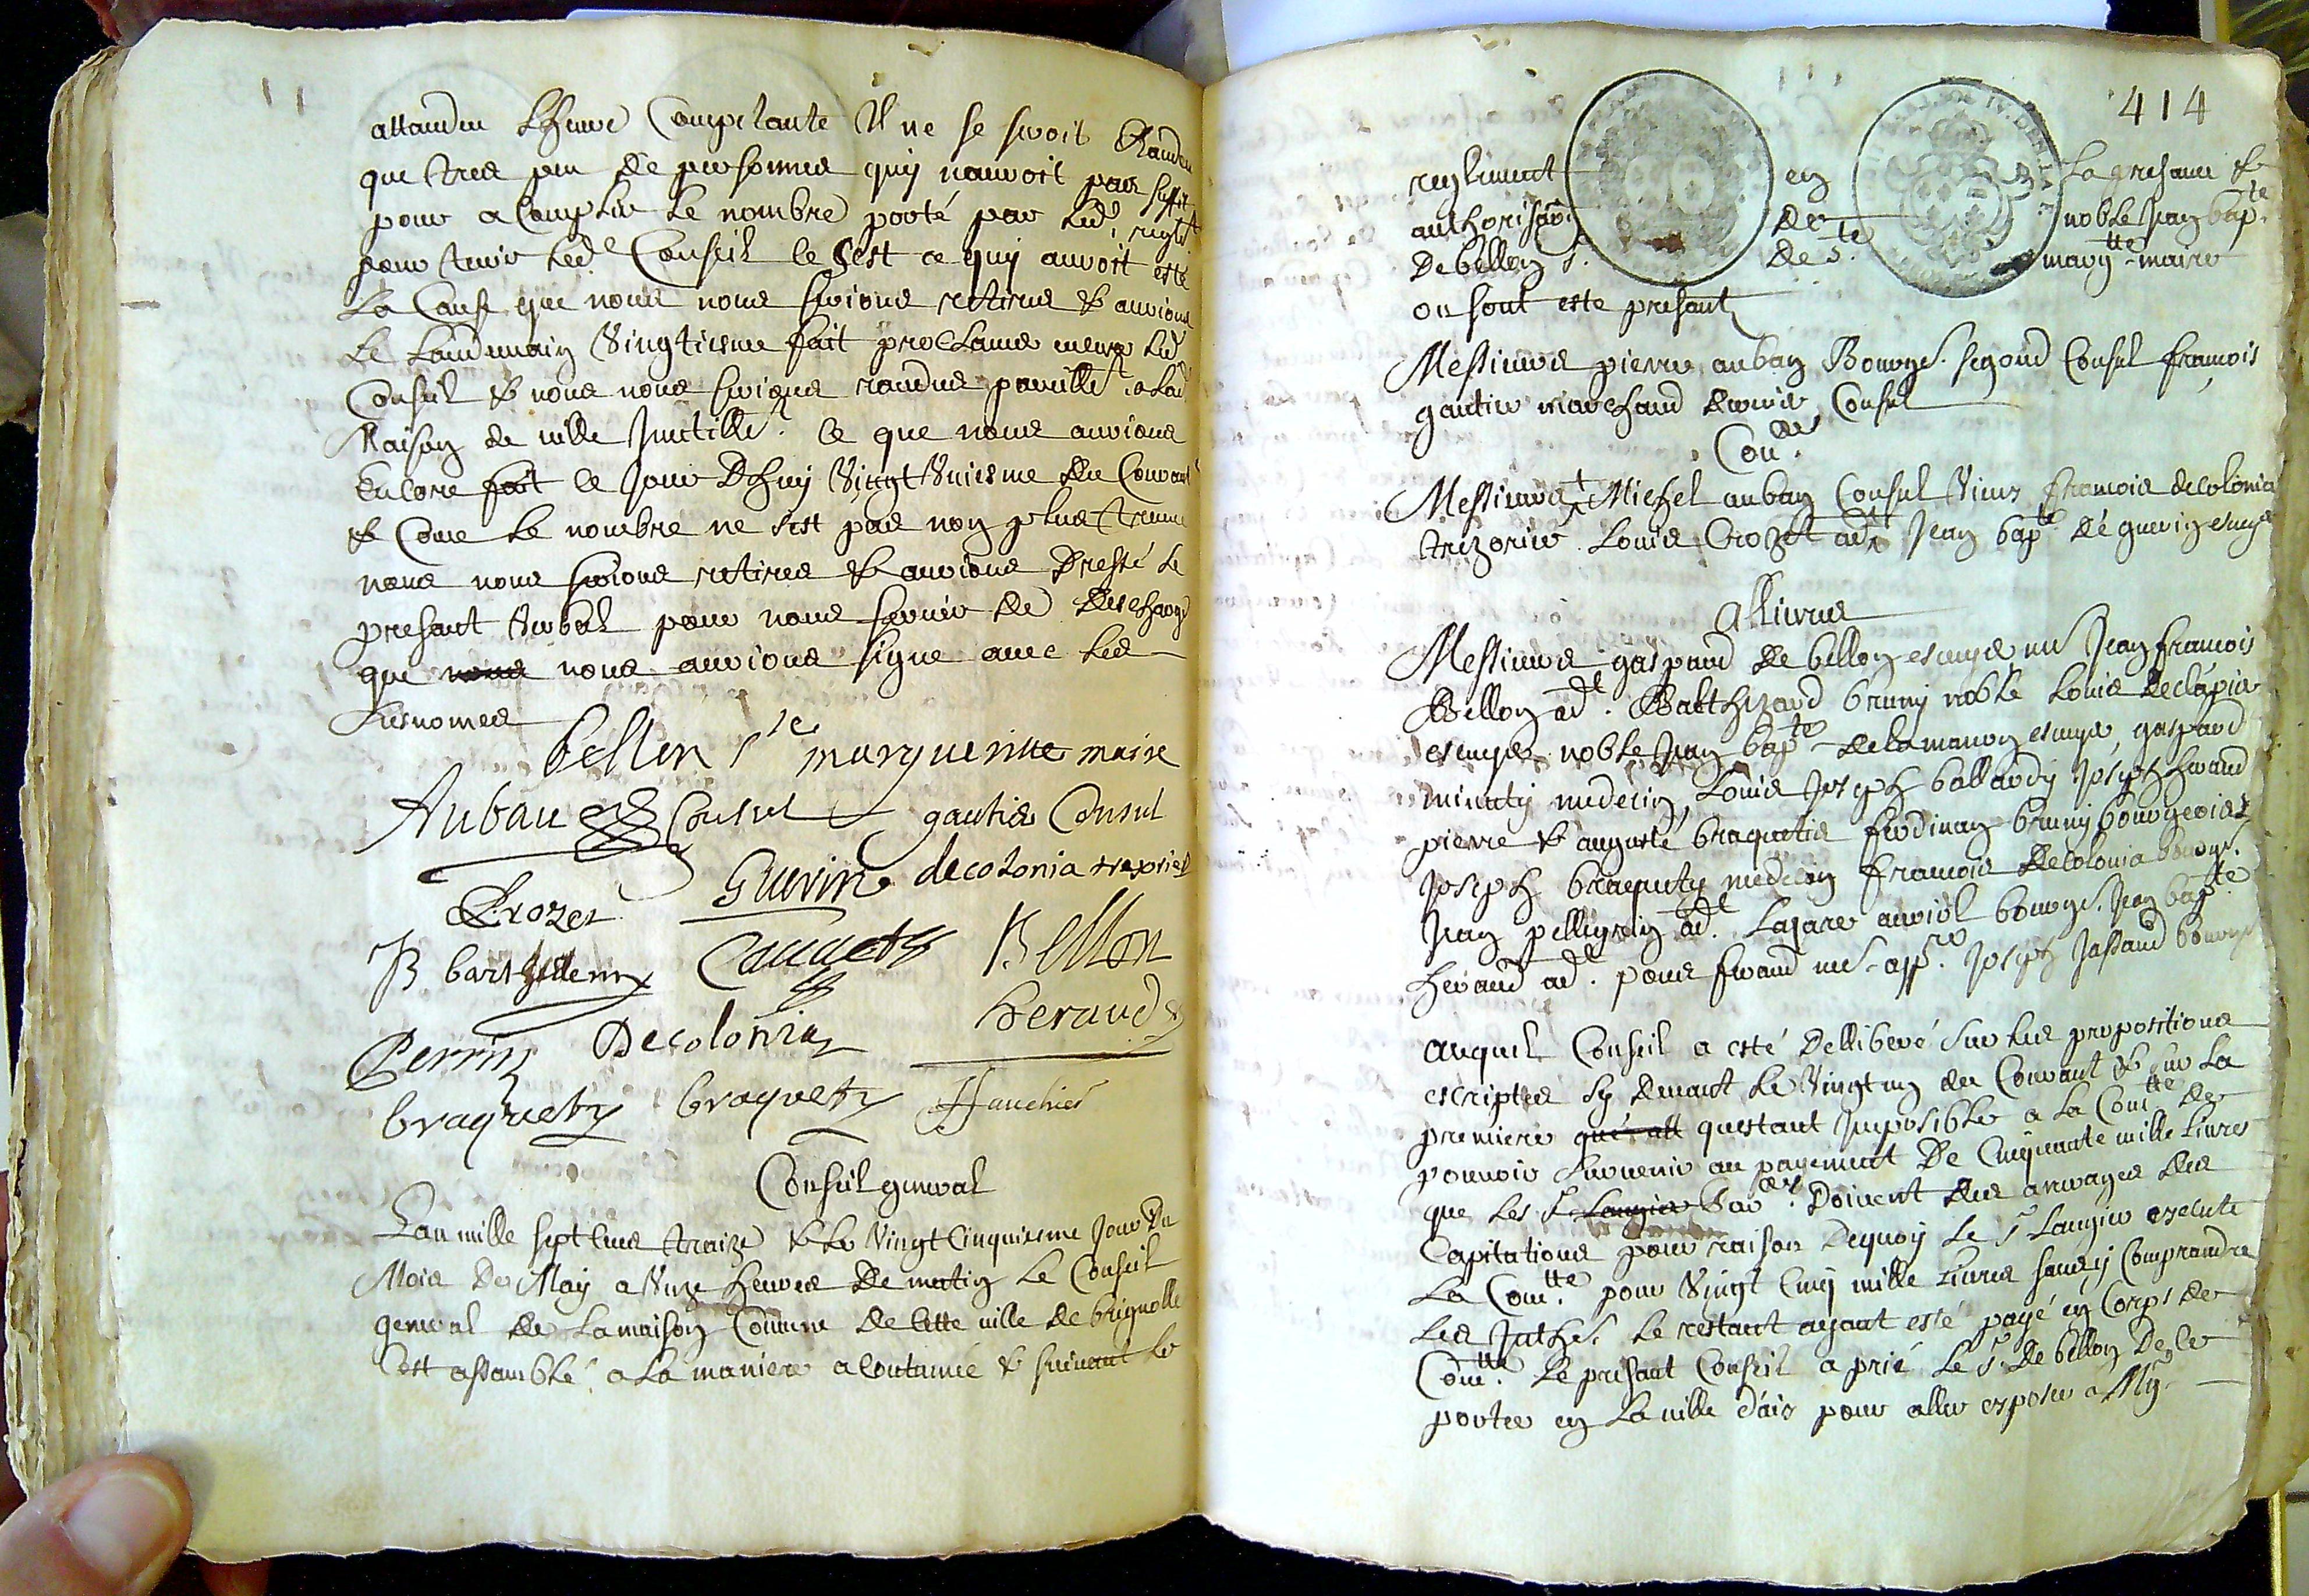 attandeu Lheure Competante Il ne se seroit Randeu
que tres peu de personnes quy nauroit pas suffit
pour acomplir le nombre porté par led. reglt
pour tenir led. Conseil ce Cest ce quy auroit esté
La Cause que nous nous serions retires & aurions
Le Landemain Vingtiesme fait proclame led.
Conseil & nous nous serions randus pareillet a lad.
Maison de ville Inutillet. Ce que nous aurions
Encore fait ce Jour Dhuy Vingt Uniesme du Courant
& Come le nombre ne sest pas non plus treuve
nous nous serions retires & aurions Dressé le
presant verbal pour nous servir de descharge
que nous nous aurions signe avec les
susnomes
bellon Ste margueritte maire
Auban Consul gautier Consul
Crozet Guerin decolonia trezorier
B barthellemy Cauvet Bellon
Perrin Decolonia heraud
braquety braquety
Conseil general
Lan mille sept Cens traize & le Vingt Cinquiesme Jour Du
Mois De May a Unze heures De matin le Conseil
general de La maison Comune de Cette ville de brignolle
Cest assamblé a la maniere acoutumée & suivant le
414
reglement en La presance &
authorisaon. de noble Jean bapte.
De bellon Sr. de Ste margtte. maire
on sont este presant
Messieurs pierre auban Bourgs. segond Consul francois
gautier marchand dernier Consul
Coners.
Messieurs Michel auban Consul Vieux francois decolonia
trezorier Louis Crozet adt Jean bapte. de guerin escuyer
allivres
Messieurs gaspard de bellon escuyer me Jean francois
Bellon adt. Balthezard bruny noble Louis declapier
escuyer noble Jean bapte de lamanon escuyer, gaspard
minuty medecin, Louis Joseph ballardy Joseph heraud
pierre & auguste braquetis ferdinan bruny bourgeois
Joseph braquety medecin francois decolonia bourgs.
Jean pellegrin adt. Lazare auriol bourgs. Jean bapte
heraud adt. pons heraud me apre. Joseph Jassaud bourgs
auquel Conseil a esté Dellibéré sur les propositions
escriptes sy devant le Vingt un du Courant & sur la
premiere questant Imposible a la Comtte de
pouvoir survenir au payement De Cinquante mille livres
que les Sr Laugier Doivent des arrages des
Capitations pour raison dequoy le Sr Laugier execute
La Comtte. pour Vingt Cinq mille livres sans y Comprandre
les Inths. le restant ayant esté payé en Corps de
Comtte. Le presant Conseil a prié le Sr. de bellon De se
porter en la ville daix pour aller exposer a Mgr